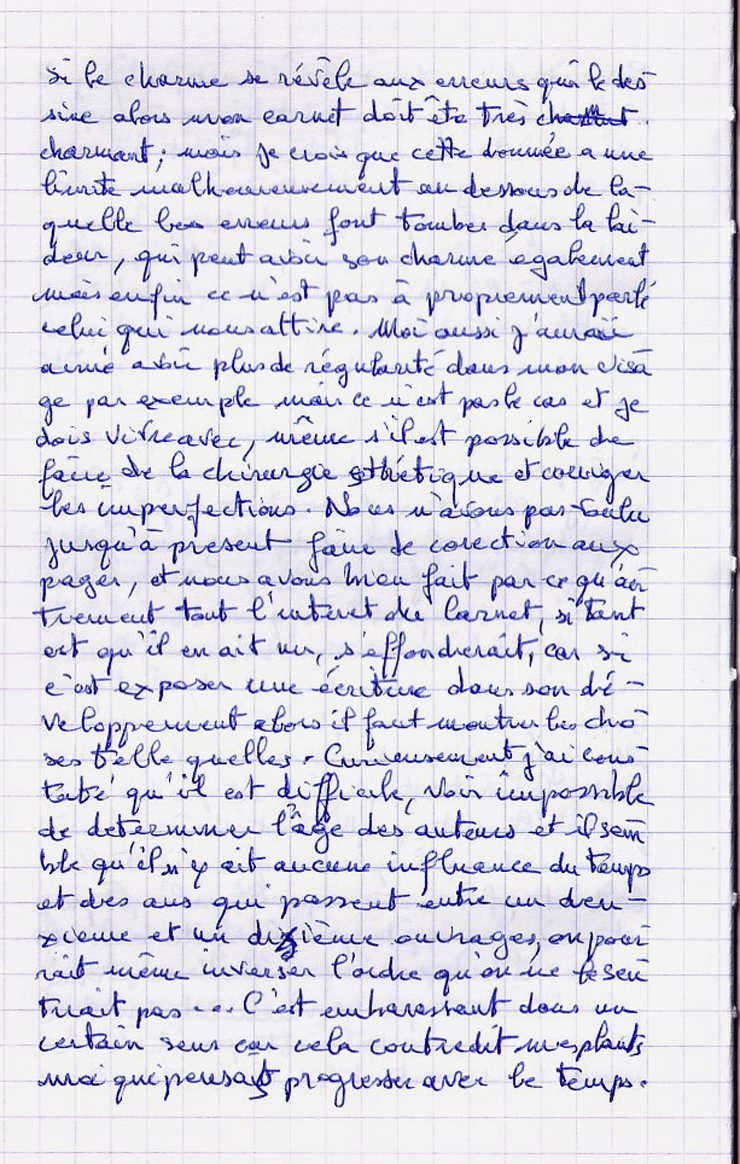 Si le charme se révèle aux erreurs qui le des
sine alors mon carnet doit être très charmant.
charmant; mais je crois que cette donnée a une
limite malheureusement au dessous de la-
quelle les erreurs font tomber dans la lai-
deur, qui peut avoir son charme également
mais enfin ce n'est pas à proprement parlé
celui qui nous attire. Moi aussi j'aurai
aimé avoir plus de régularité dans mon visa
ge par exemple mais ce n'est pas le cas et je
dois vivre avec, même s'il est possible de
faire de la chirurgie esthétique et corriger
les imperfections. Nous n'avons pas voulu
jusqu'à présent faire de corection aux
pages, et nous avons bien fait par ce qu'au
trement tout l'interet du carnet, si tant
est qu'il en ait un, s'effondrerait, car si
c'est exposer une écriture dans son dé-
veloppement alors il faut montrer les cho
ses telle quelles. Curieusement j'ai cons
taté qu'il est difficile, voir impossible
de déterminer l'âge des auteurs et il sem
ble qu'il n'y ait aucune influance du temps
et des ans qui passent entre un deu-
xieme et un dixième ouvrages, on pour
rait même inverser l'ordre qu'on ne le sen
tirait pas... C'est embarassant dans un
certain sens car cela contredit mes plants
moi qui pensait progresser avec le temps.